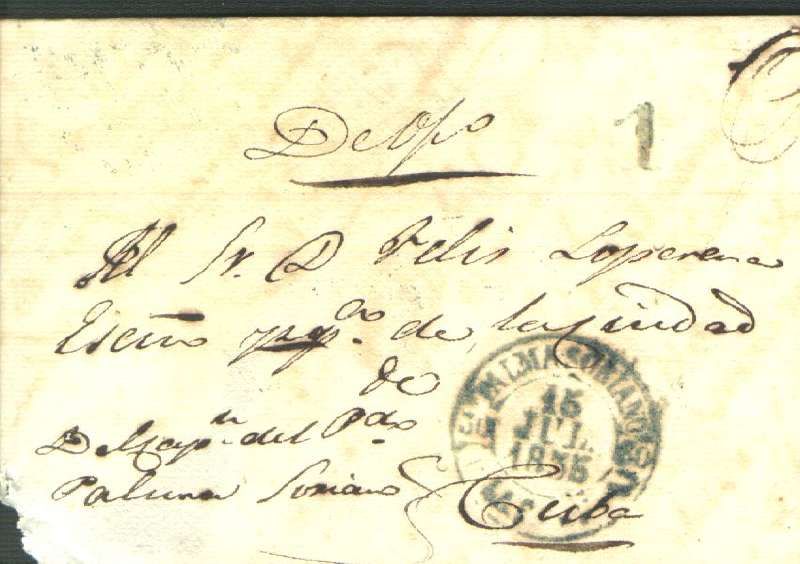 De Ofo
1
Al Sr. D Felis Loperena
Escno ppco. de la Ciudad
de
Del Capn. del Pdo
Palma Soriano
Cuba
PALMA SORIANO
15
JUL.
1855